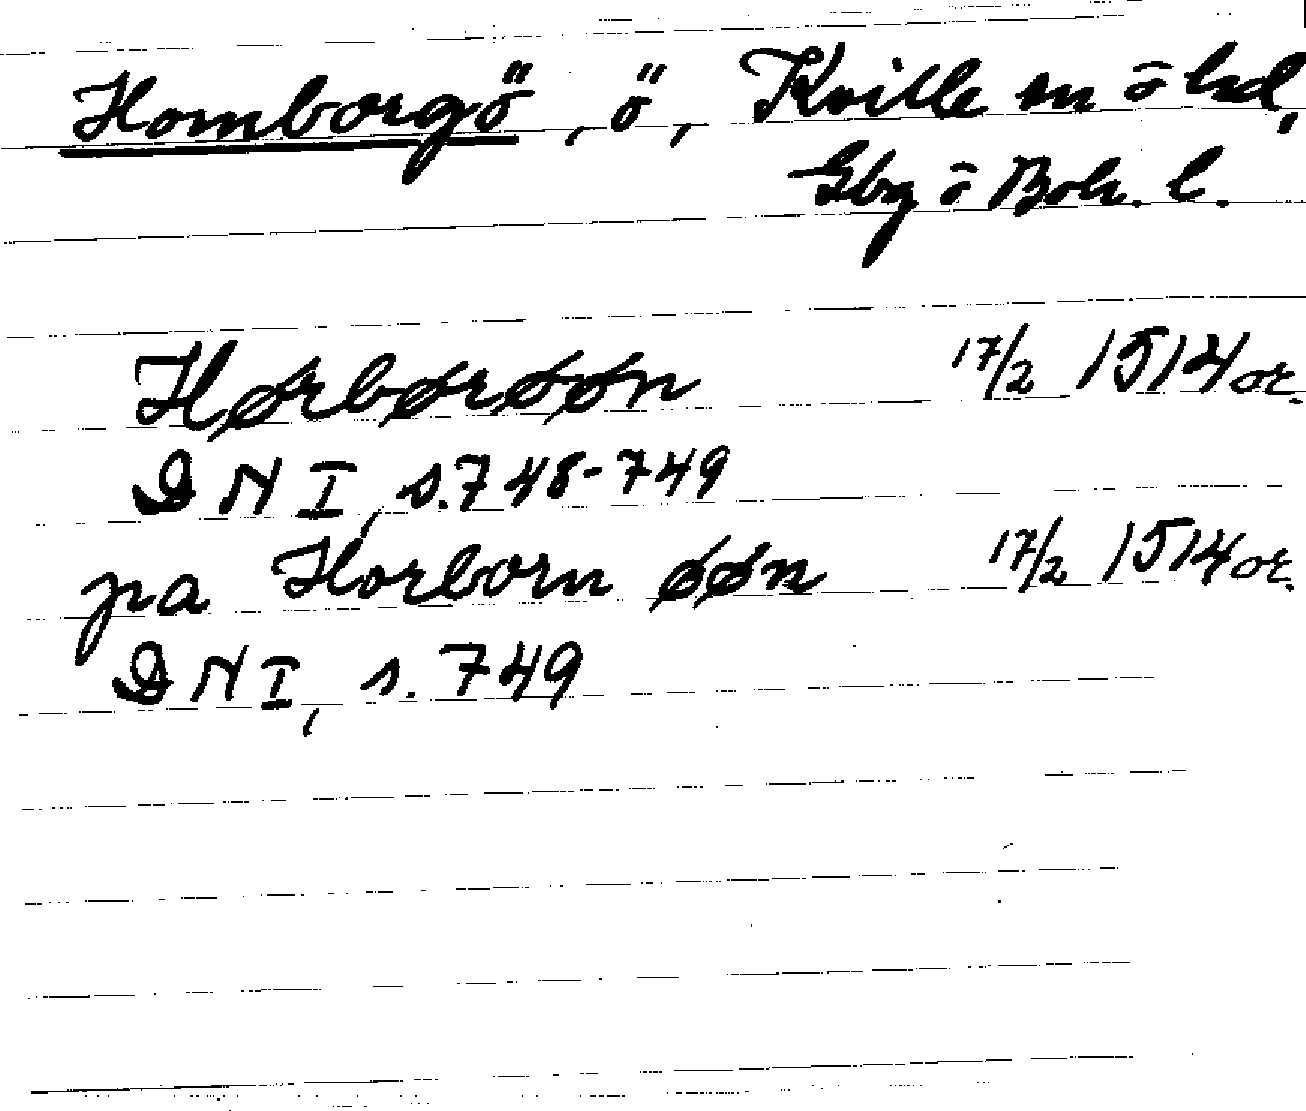 Homborgö, ö, Kville sn o hd,
Gbg o Boh. l.
Hørbørøøn 17/2 1514 or.
DN I, s. 748-749
pa Horborn øøn 17/2 1514 or.
DN I, s. 749